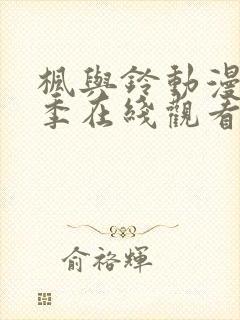 楓與鈴動漫
季在綫觀看
俞裕輝